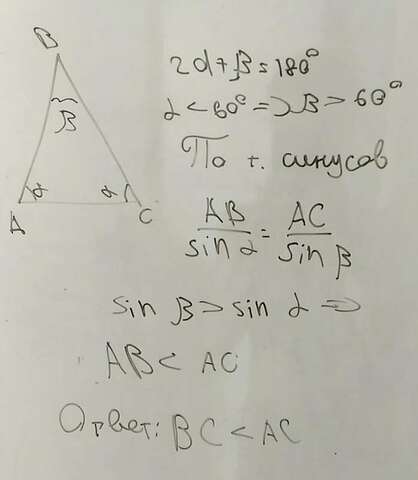 B
β
α α
A C
2α+β=180°
α<60°=>β>60°
По т. синусов
AB/sin α = AC/sin β
sin β > sin α =>
AB < AC
Ответ: BC < AC